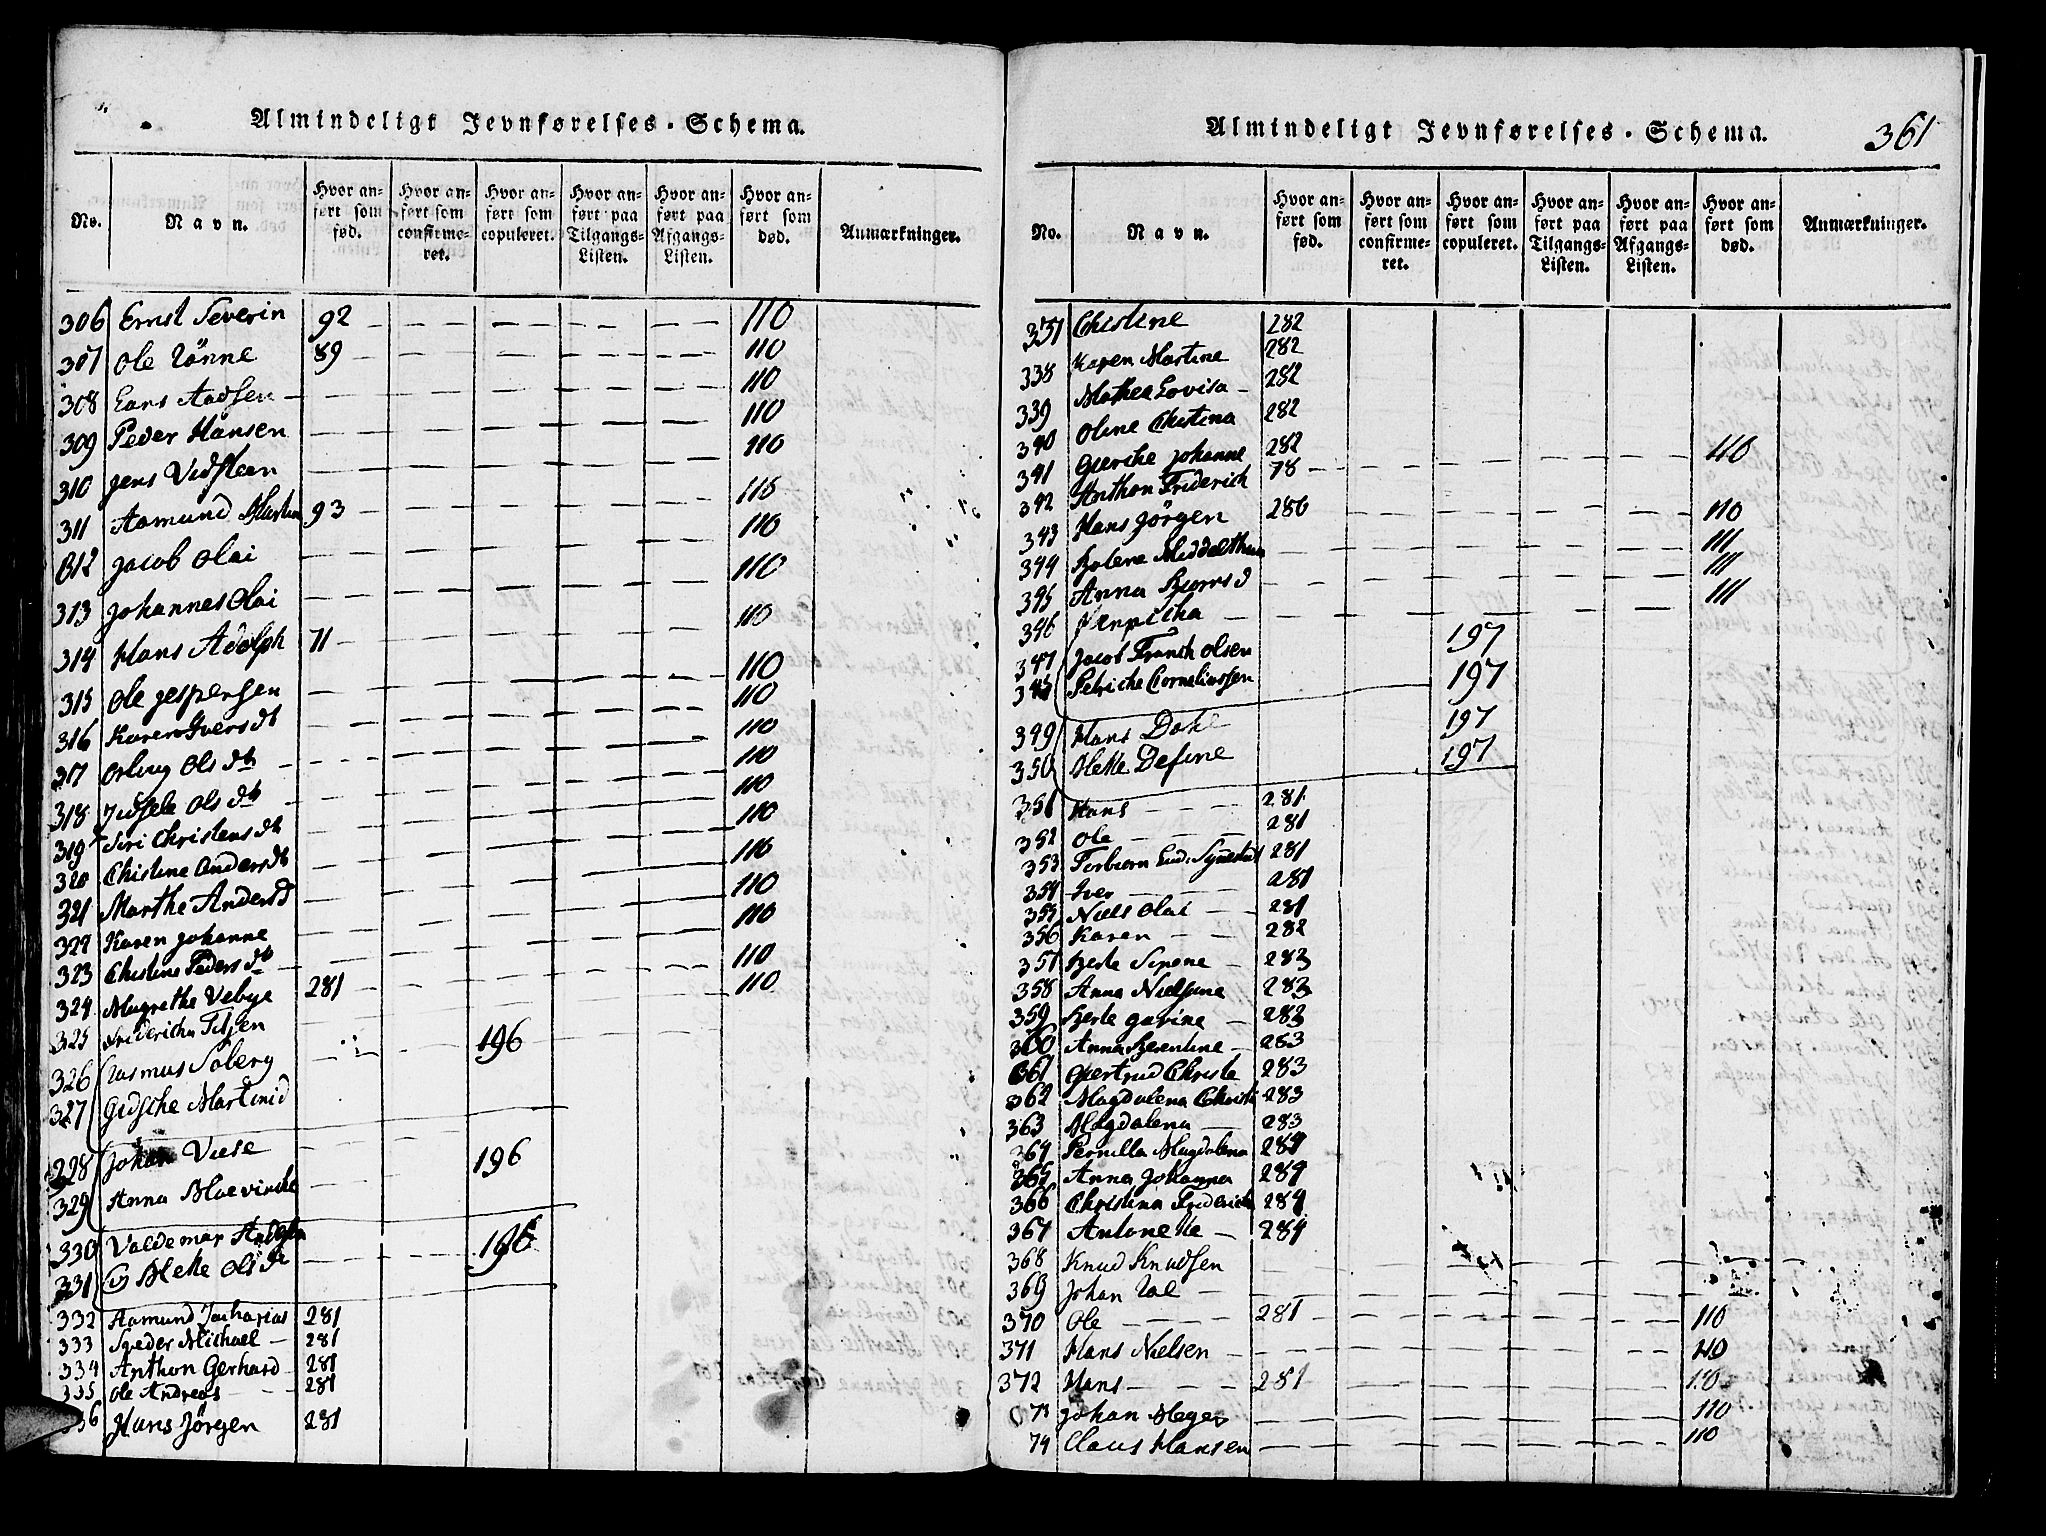 Almindeligt Jevnførelses-Schema.
No. Navn. Hvor anført som fød. Hvor anført som confirmeret. Hvor anført som copuleret. Hvor anført paa Tilgangs-Listen. Hvor anført paa Afgangs-Listen. Hvor anført som død. Anmærkninger.
306 Ernst Severin 92 110
307 Ole Rönne 89 110
308 Lars Aadsen 110
309 Peder Hansen 110
310 Jens 110
311 Aamund 93 110
312 Jacob Olai 110
313 Johannes Olai 110
314 Hans Adolph 71 110
315 Ole Jespersen 110
316 Karen Ivers dt 110
317 Ols dt 110
318 Ols dt 110
319 Siri Christens dt 110
320 Christine Anders dt 110
321 Marthe Anders d 110
322 Karen Johanne 110
323 Christine Peders dt 110
324 Magrethe Vebye 281 110
325 Fridericha 110
326 Rasmus Soberg 196
327 Gidsche Martinid
328 Johan Viese 196
329 Anna
330 Valdemar 196
331 Mette Ols dt
332 Aamund Zacharias 281
333 Peder Michael 281
334 Anthon Gerhard 281
335 Ole Andreas 281
336 Hans Jörgen 281
Almindeligt Jevnførelses-Schema. 361
No. Navn. Hvor anført som fød. Hvor anført som confirmeret. Hvor anført som copuleret. Hvor anført paa Tilgangs-Listen. Hvor anført paa Afgangs-Listen. Hvor anført som død. Anmærkninger.
337 Christine 282
338 Karen Martine 282
339 Mathea Lovisa 282
340 Oline Christina 282
341 Giertche Johanne 282
342 Anthon Friderich 78 110
343 Hans Jörgen 280 110
344 Middelthun 111
345 Anna 111
346 111
347 Jacob Olsen 197
348 Petriche Corneliussen 197
349 Hans Dahl 197
350 Mette 197
351 Hans 281
352 Ole 281
353 Torbiorn 281
354 Iver 281
355 Niels Olai 281
356 Karen 282
357 Berte 283
358 Anna Nielsine 283
359 Berte Gurine 283
360 Anna Berentine 283
361 Giertrud Christe 283
362 Magdalena 283
363 Magdalena 283
364 Pernilla Magdalena 284
365 Anna Johanna 284
366 Christina Friderica 284
367 Antonette 284
368 Knud Knudsen
369 Johan
370 Ole 281 110
371 Hans Nielsen 110
372 Hans 281 110
73 Johan Meyer 110
74 Claus Hansen 110